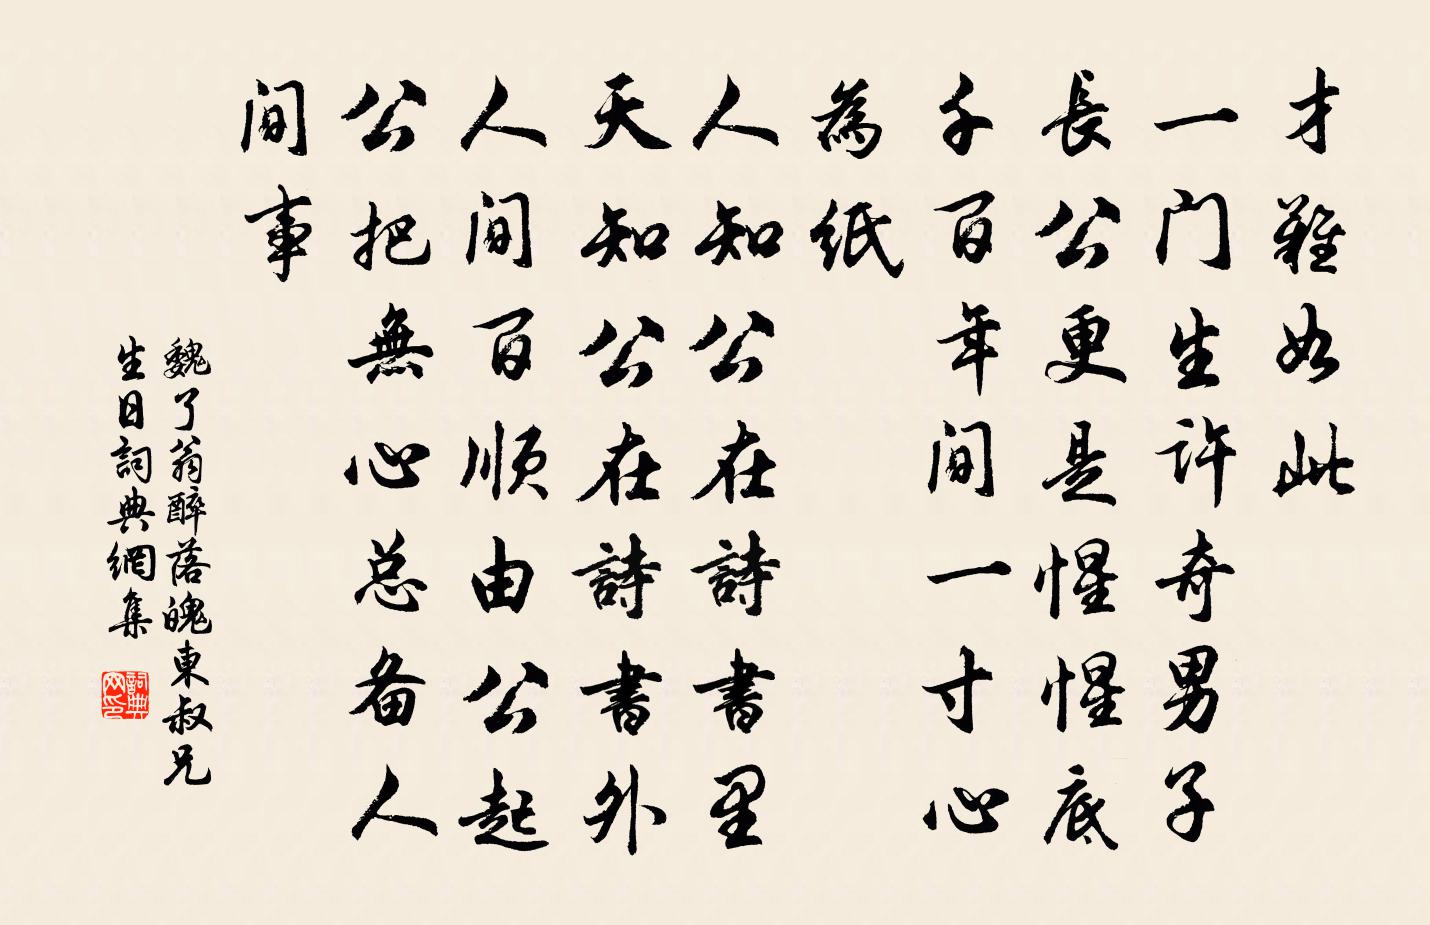 才難如此
一门生许奇男子
長公更是惺惺底
千百年间一寸心
為纸
人知公在詩書里
天知公在詩書外
人间百顺由公起
公把無心总备人
间事
魏了翁醉落魄東叔兄
生日詞典網集
詞典网印